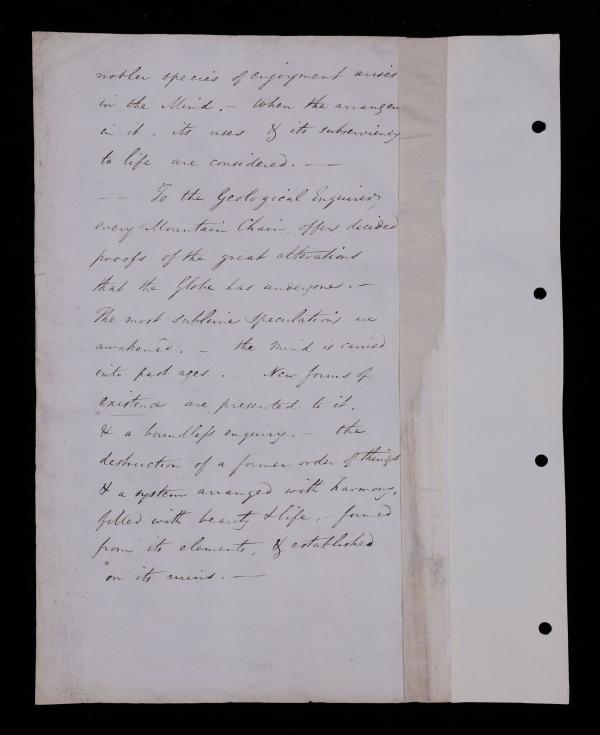 nobler species of enjoyment arises
in the Mind, – When the arrangem
in it, its uses & its subserviency
to life are considered. – –
– – To the Geological Enquirer,
every Mountain Chain, offers decided
proofs of the great alterations
that the Globe has undergone. –
The most sublime speculations are
awakened. – the mind is carried
into past ages. – New forms of
existence are presented to it.
& a boundless enquiry. – the
destruction of a former order of things
& a system arranged with harmony,
filled with beauty & life, – formed
from its elements, & established
on its ruins. –